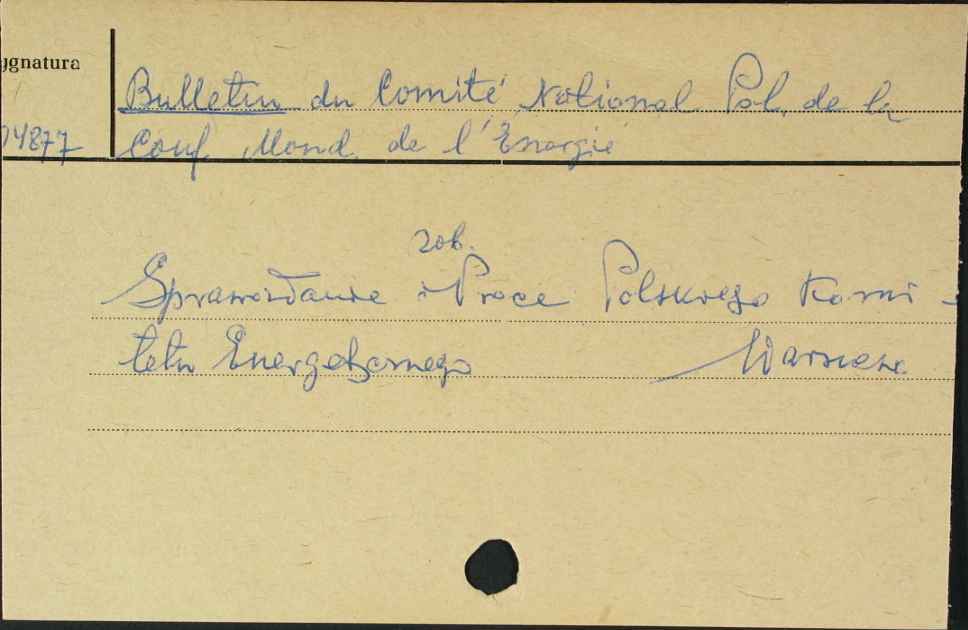 ygnatura
Bulletin du Comité National Pol. de la
04877 Conf. Mond. de l'Énergie
zob.
Sprawozdanie i Prace Polskiego Komi-
tetu Energetycznego Warszawa